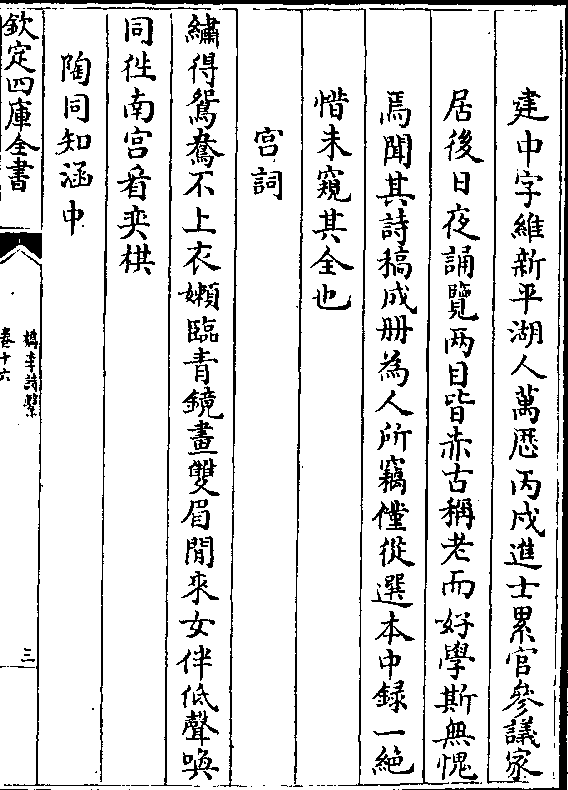 建中字維新平湖人萬厯丙戌進士累官參議家
居後日夜誦覽两目皆赤古稱老而好學斯無愧
焉聞其詩稿成册為人所竊僅從選本中録一絶
惜未窺其全也
宫詞
繡得鴛鴦不上衣嬾臨青鏡畫雙眉閒來女伴低聲喚
同徃南宫看奕棋
陶同知涵中
欽定四庫全書
檇李詩繫
卷十六
三